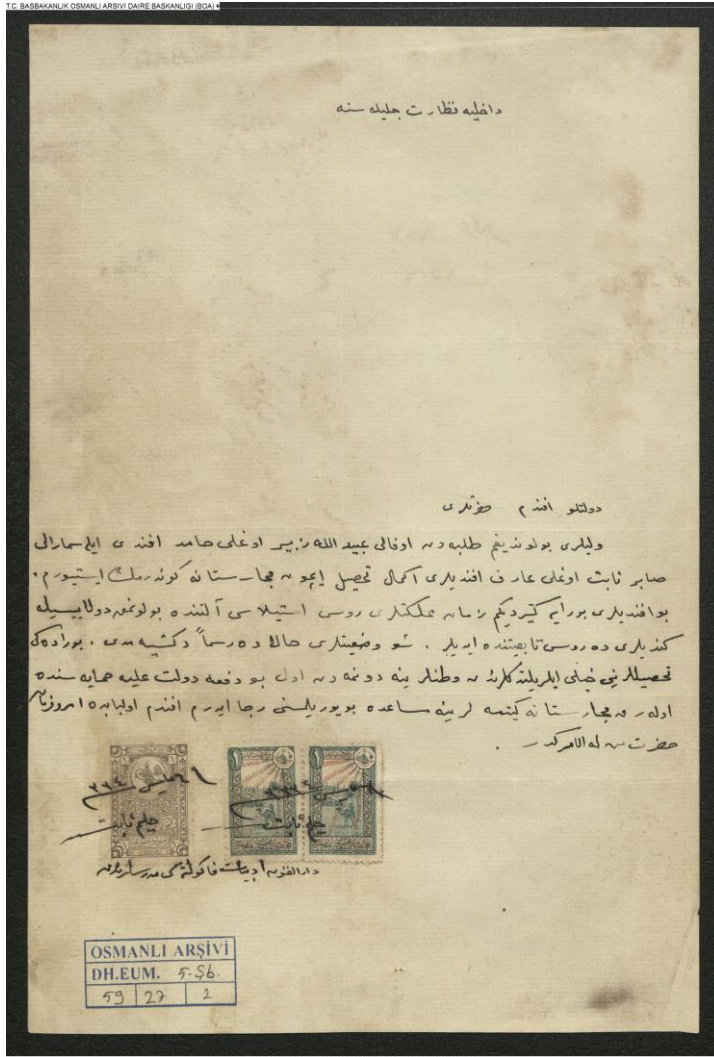 T.C. BAŞBAKANLIK OSMANLI ARŞİVİ DAİRE BAŞKANLIĞI (BOA)
داخلیه نظارت جلیله سنه
دولتلو افندم حضرتلری
ولیلری بولوندیغم طلبه دن اوفالی عبید الله اوغلی حامد افندی ایله سمارالی
صابر ثابت اوغلی عارف افندیلری اکمال تحصیل ایچون مجارستانه کوندرمك ایستیورم.
بو افندیلری بورایه کتیردیکم زمان مملکتلری روس استیلاسی آلتنده بولونمق دولاییسیله
کندیلری ده روس تابعیتنده ایدیلر. شو وضعیتلری حالا ده رسماً دکشمه مدی. بوراده کی
تحصیللرینی خیلی ایلریلتدکلرندن وطنلرینه دونمه دن اول بو دفعه دولت علیه حمایه سنده
اوله رق مجارستانه کیتمه لرینه مساعده بویوریلسنی رجا ایدرم افندم اولبابده امر و فرمان
حضرت من له الامرکدر.
مارس ٣٣٤
حلیم ثابت
حلیم ثابت
دار الفنون ادبیات فاکولته سی مدرسلرندن
OSMANLI ARŞİVİ
DH.EUM. 5.Şb.
59 27 2